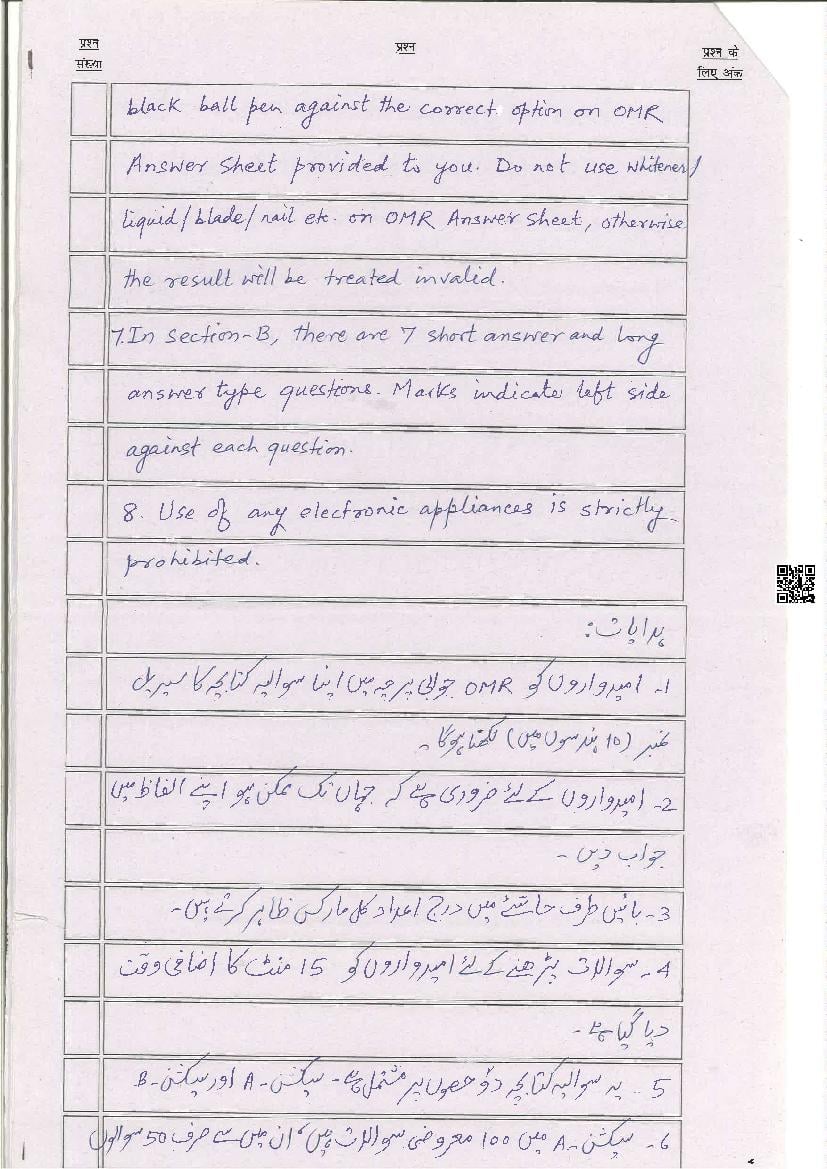 प्रश्न संख्या
प्रश्न
प्रश्न के लिए अंक
black ball pen against the correct option on OMR
Answer Sheet provided to you. Do not use whitener/
liquid/blade/nail etc. on OMR Answer Sheet, otherwise
the result will be treated invalid.
7. In section-B, there are 7 short answer and long
answer type questions. Marks indicate left side
against each question.
8. Use of any electronic appliances is strictly
prohibited.
ہدایات:
1- امیدواروں کو OMR جوابی پرچہ میں اپنا سوالیہ کتابچہ کا سیریل
نمبر (10 ہندسوں میں) لکھنا ہوگا۔
2- امیدواروں کے لئے ضروری ہے کہ جہاں تک ممکن ہو اپنے الفاظ میں
جواب دیں۔
3- بائیں طرف حاشئے میں درج اعداد کل مارکس ظاہر کرتے ہیں۔
4- سوالات پڑھنے کے لئے امیدواروں کو 15 منٹ کا اضافی وقت
دیا گیا ہے۔
5. یہ سوالیہ کتابچہ دو حصوں پر مشتمل ہے۔ سیکشن-A اور سیکشن-B
6- سیکشن-A میں 100 معروضی سوالات ہیں، ان میں سے صرف 50 سوالوں